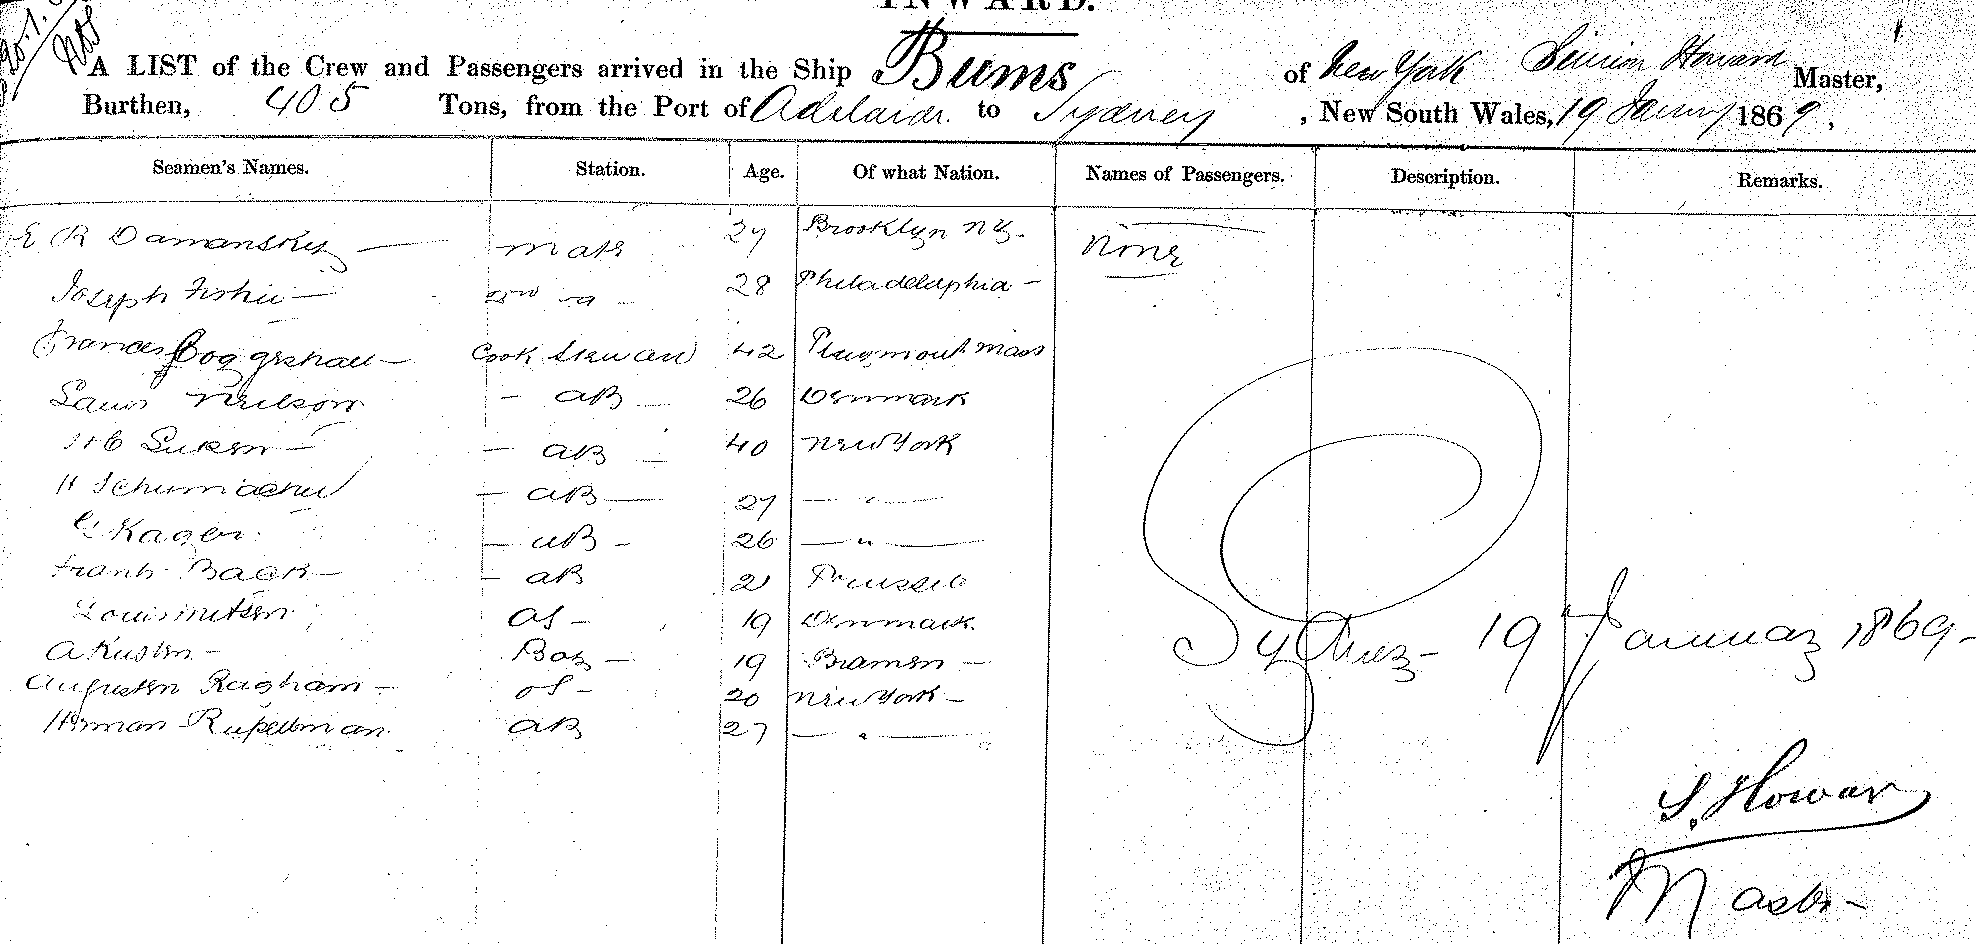 INWARD.
A LIST of the Crew and Passengers arrived in the Ship Bums of New York Simion Howard Master,
Burthen, 405 Tons, from the Port of Adelaide to Sydney, New South Wales, 19 January 1869,
Seamen's Names. Station. Age. Of what Nation. Names of Passengers. Description. Remarks.
E R Damansky Mate 27 Brooklyn NY. None
Joseph 28 Philadelphia
Frances Coggeshall Cook Steward 42 Playmouth Mass
Neilson AB 26 Denmark
AB 40 New York
H Schumacher AB 27 — " —
Kager AB 26 — " —
Frank Back AB 21
Louis OS 19 Denmark
A Kusten Boy 19 Bramen
Augusten Ragham OS 20 New York
Herman AB 27 — " —
Sydney 19 January 1869
S. Howard
Master